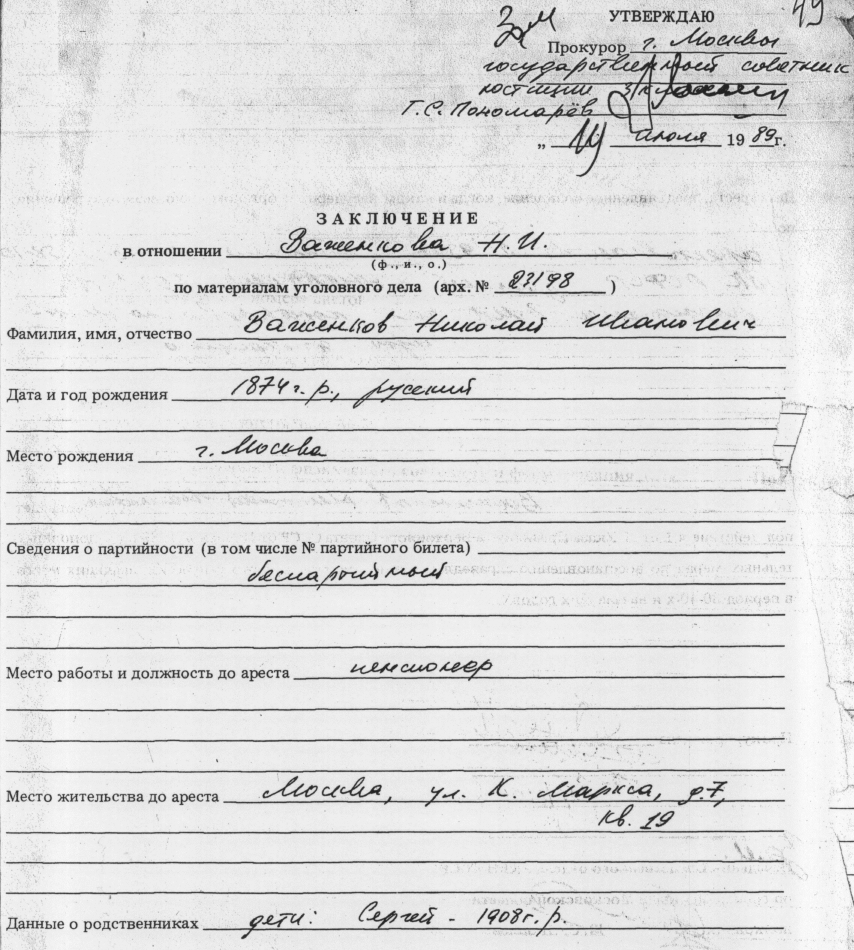 49
Зам
УТВЕРЖДАЮ
Прокурор г. Москвы
государственный советник
юстиции 3 кл
Г.С. Пономарёв
„ 14 июля 1989г.
ЗАКЛЮЧЕНИЕ
в отношении Важенкова Н.И.
(ф., и., о.)
по материалам уголовного дела (арх. № 23198)
Фамилия, имя, отчество Важенков Николай Иванович
Дата и год рождения 1874 г.р., русский
Место рождения г. Москва
Сведения о партийности (в том числе № партийного билета)
беспартийный
Место работы и должность до ареста пенсионер
Место жительства до ареста Москва, ул. К. Маркса, д.7,
кв. 19
Данные о родственниках дети: Сергей - 1908г.р.